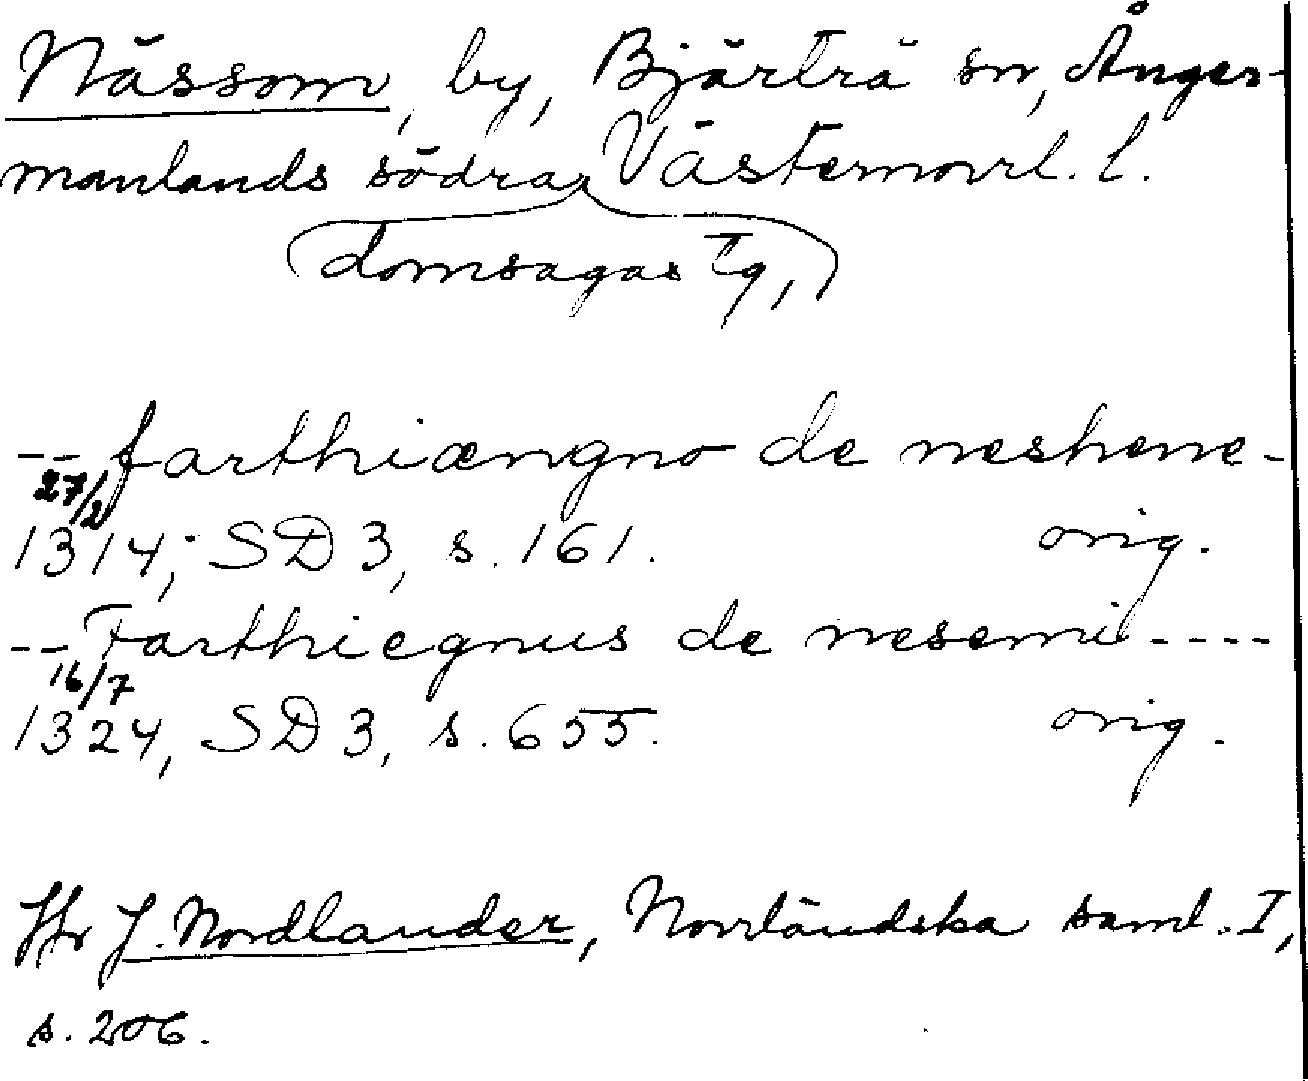 Nässom, by, Bjärtrå sn, Ånger-
manlands södra Västernorrl. l.
domsagas tg,
-- farthiængno de neshene-
27/2
1314; SD 3, s. 161. orig.
-- Farthiegnus de nesemi ----
16/7
1324, SD 3, s. 655. orig.
J. Nordlander, Norrländska saml. I,
s. 206.